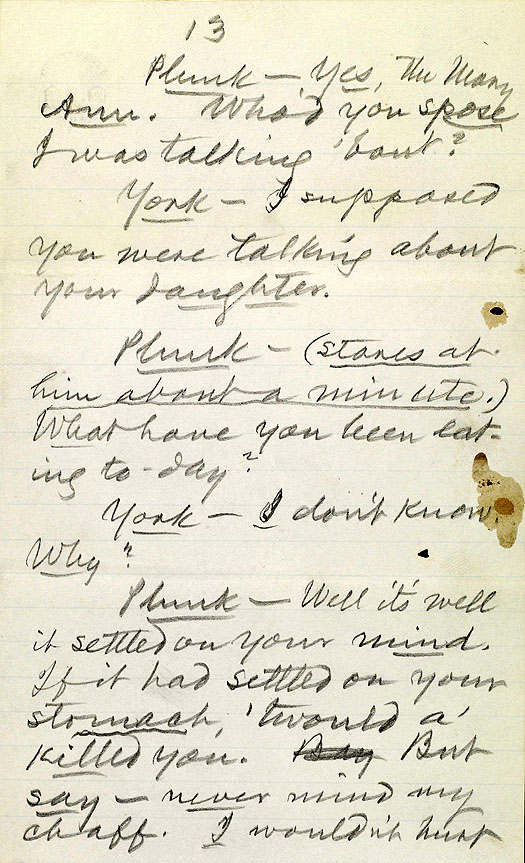 13
Plunk — Yes, The Mary
Ann. Who'd you spose
I was talking 'bout?
York — I supposed
you were talking about
your daughter.
Plunk — (stares at
him about a minute.)
What have you been eat-
ing to-day?
York — I don't know.
Why?
Plunk — Well it's well
it settled on your mind.
If it had settled on your
stomach, 'twould a'
killed you. Say But
say — never mind my
chaff. I wouldn't hurt